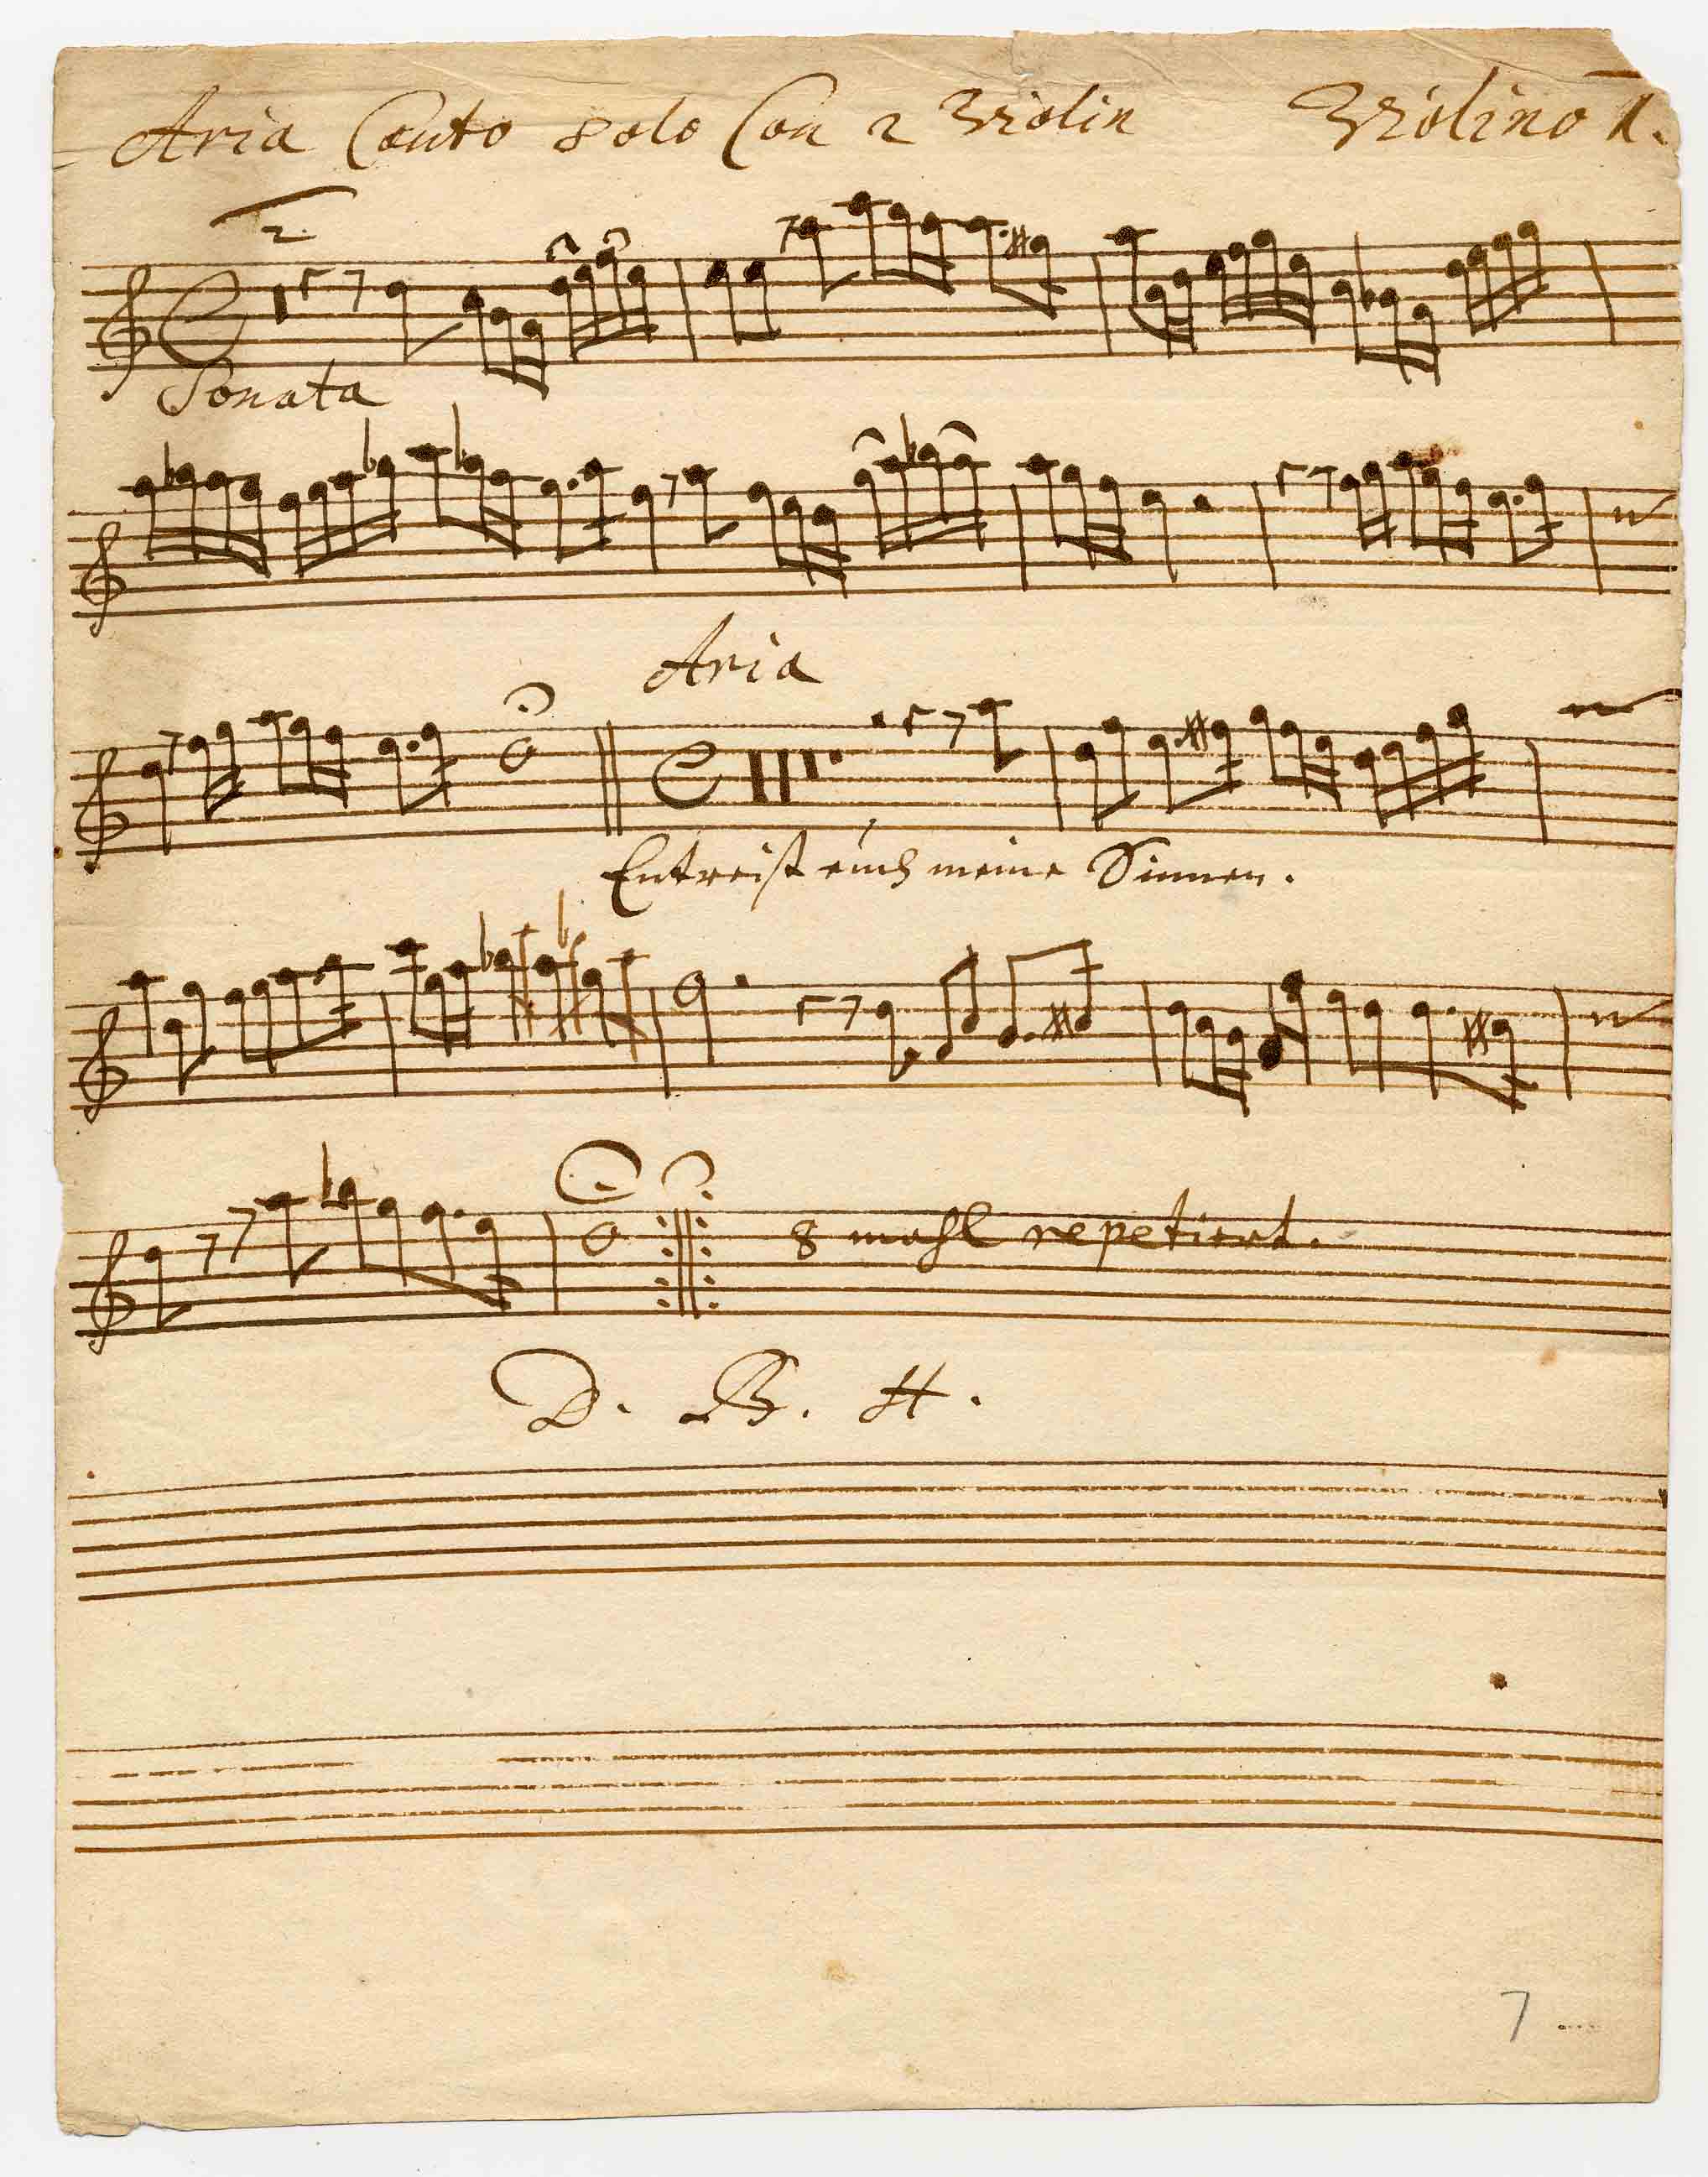 Aria Canto solo Con 2 Violin Violino 1.
2.
Sonata
Aria
Entreist euch meine Sinnen.
8 mahl repetirt.
D. B. H.
7